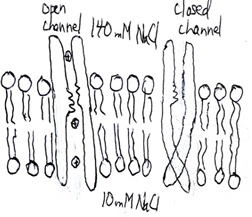 open
channel
140 mM NaCl
closed
channel
⊕
⊕
⊕
10 mM NaCl